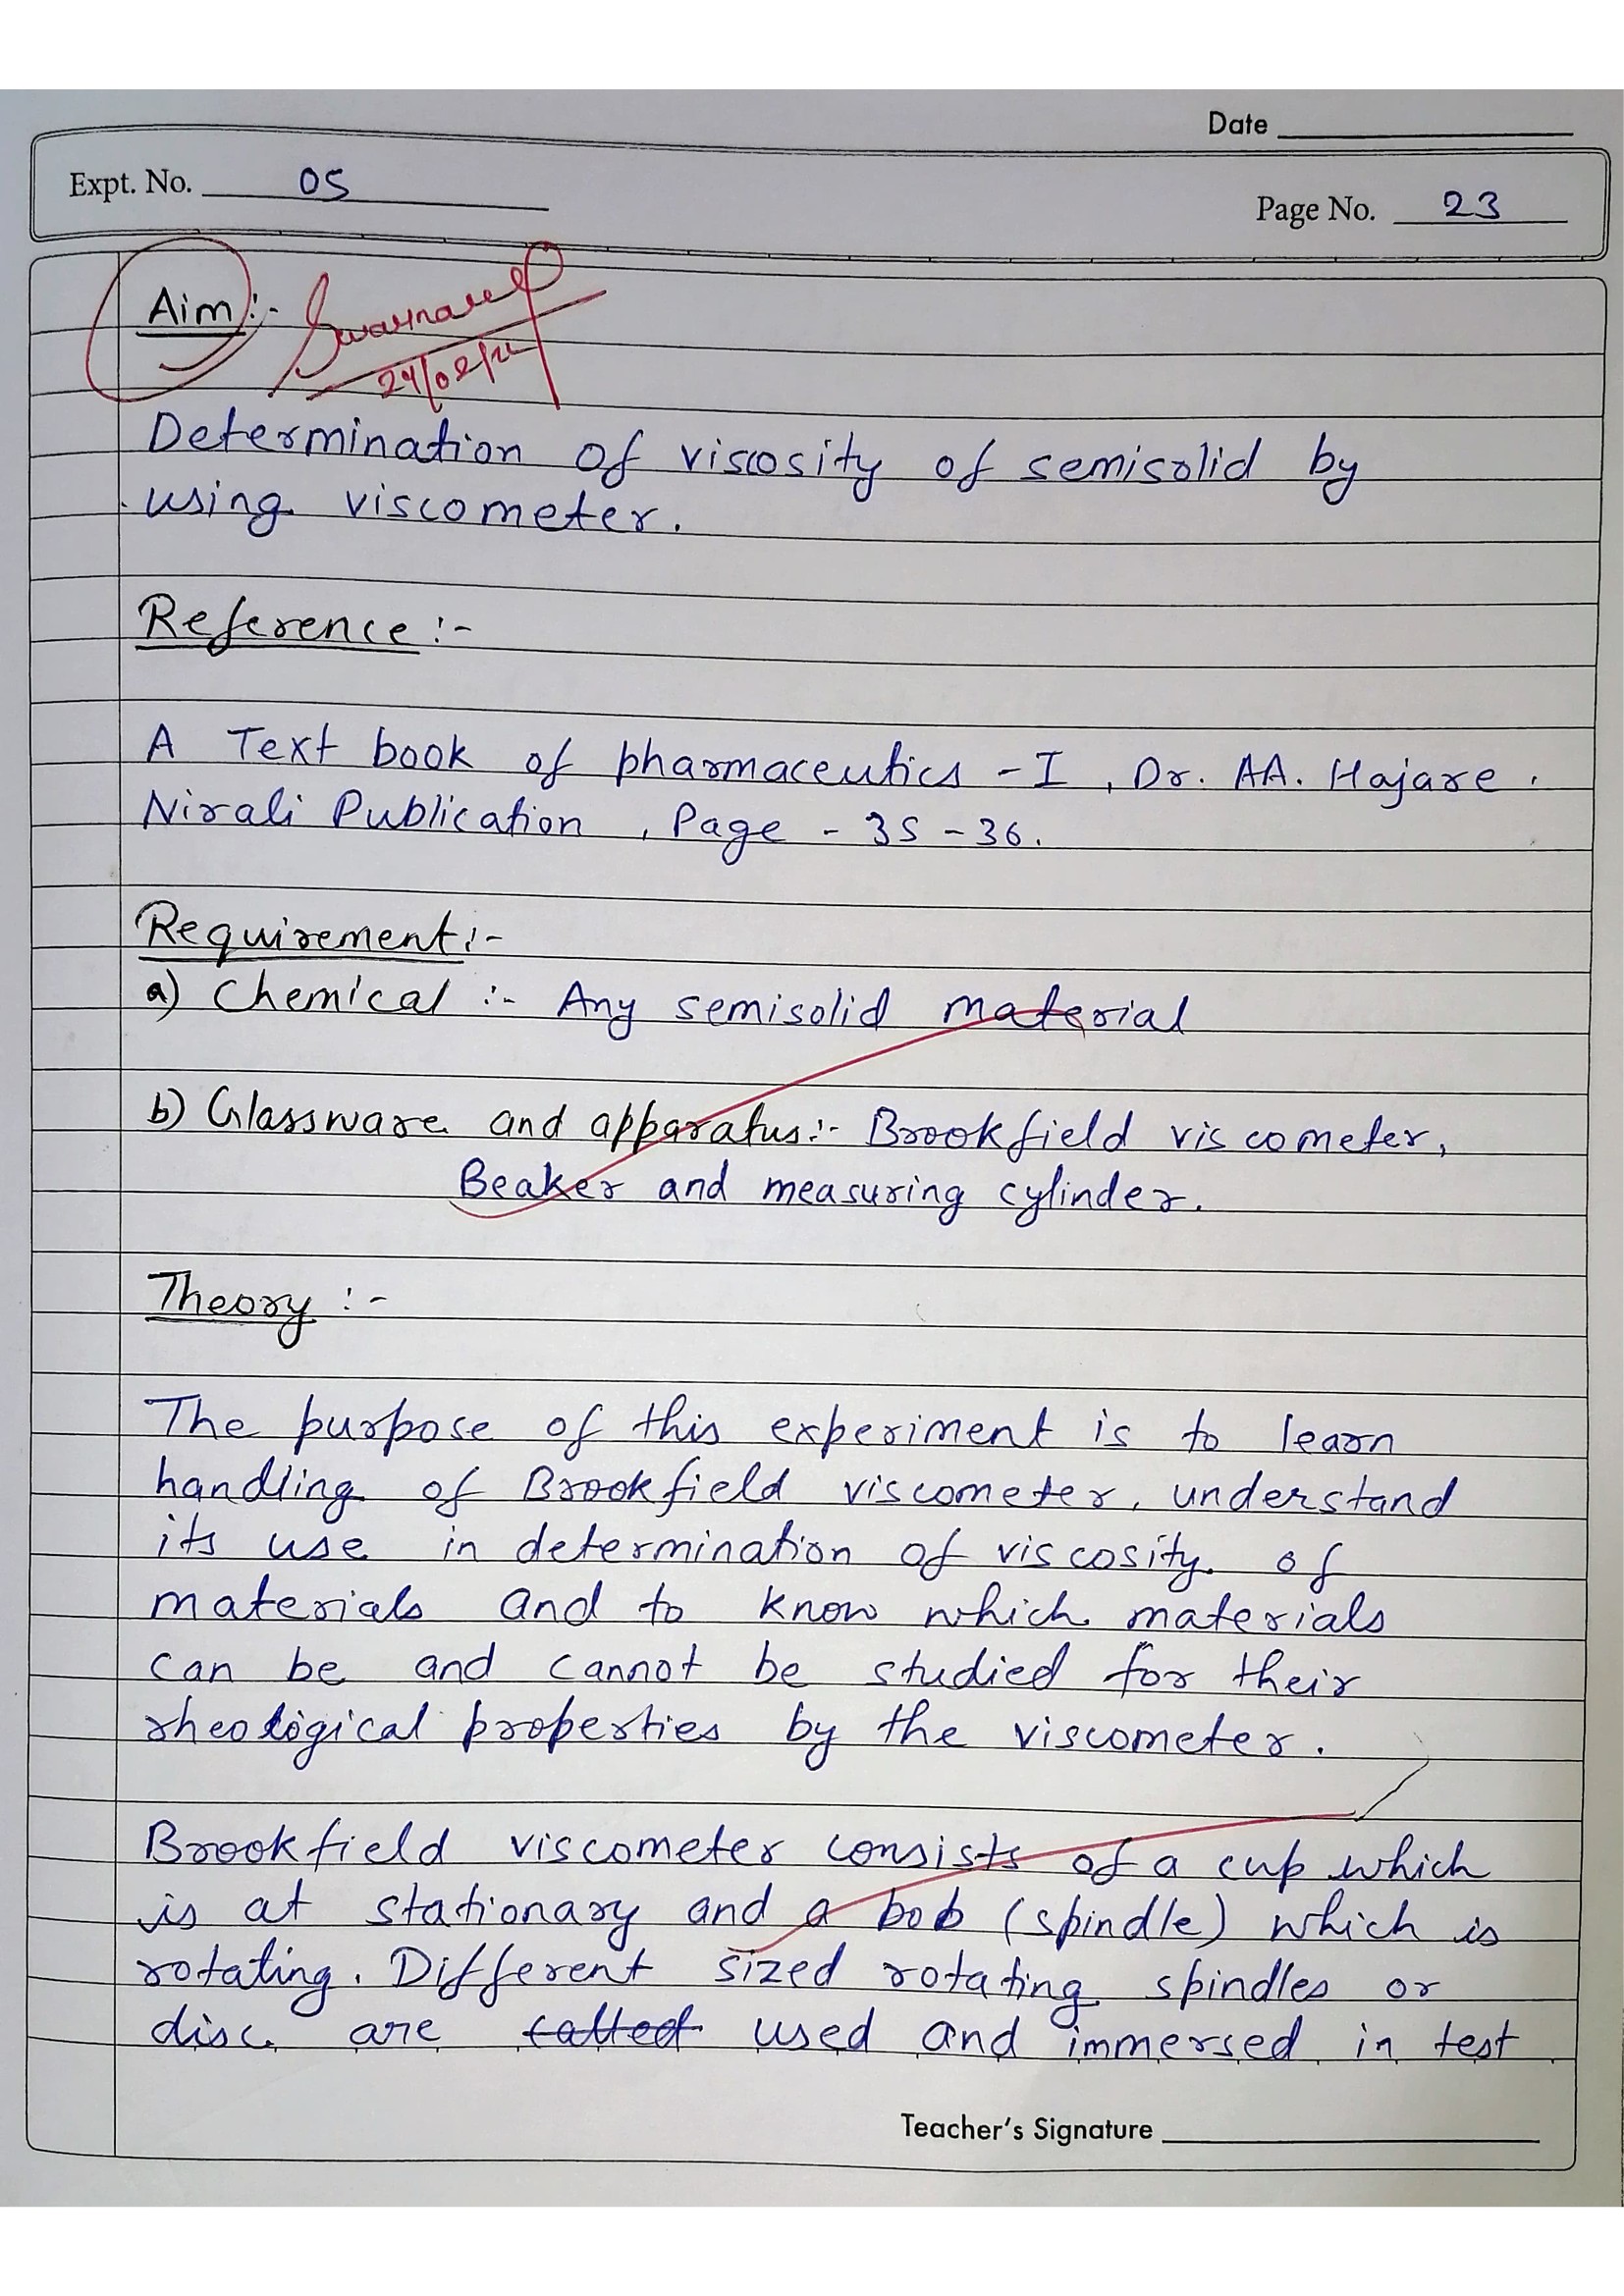 Date
Expt. No. 05
Page No. 23
Aim:-
Determination of viscosity of semisolid by
using viscometer.
Reference:-
A Text book of pharmaceutics -I, Dr. AA. Hajare.
Nirali Publication, Page - 35-36.
Requirement:-
a) Chemical :- Any semisolid material
b) Glassware and apparatus:- Brookfield viscometer,
Beaker and measuring cylinder.
Theory :-
The purpose of this experiment is to learn
handling of Brookfield viscometer, understand
its use in determination of viscosity of
materials and to know which materials
can be and cannot be studied for their
rheological properties by the viscometer.
Brookfield viscometer consists of a cup which
is at stationary and a bob (spindle) which is
rotating. Different sized rotating spindles or
disc are used and immersed in test
Teacher's Signature